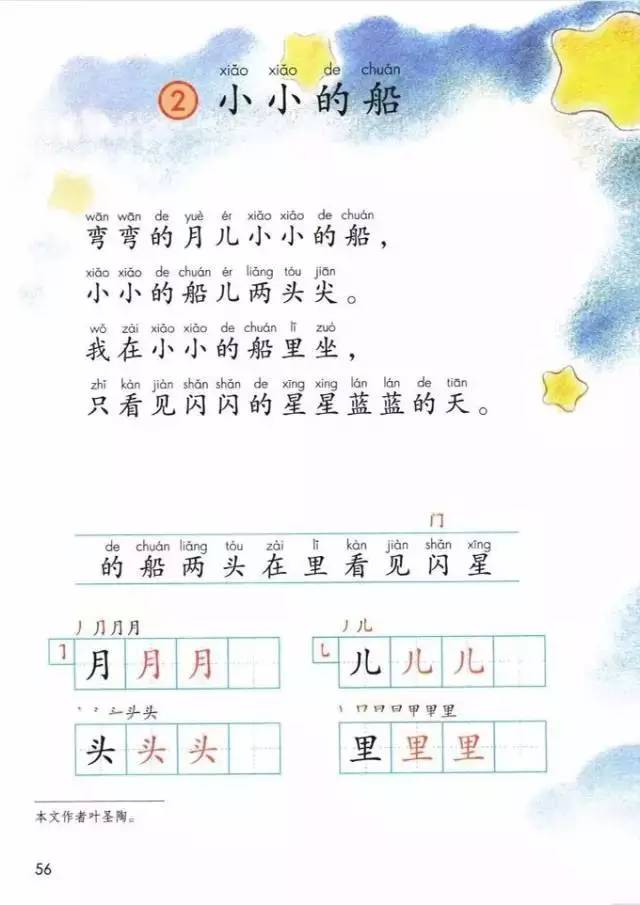 xiǎo xiǎo de chuán
② 小小的船
wān wān de yuè ér xiǎo xiǎo de chuán
弯弯的月儿小小的船，
xiǎo xiǎo de chuán ér liǎng tóu jiān
小小的船儿两头尖。
wǒ zài xiǎo xiǎo de chuán lǐ zuò
我在小小的船里坐，
zhǐ kàn jiàn shǎn shǎn de xīng xing lán lán de tiān
只看见闪闪的星星蓝蓝的天。
门
de chuán liǎng tóu zài lǐ kàn jiàn shǎn xīng
的船两头在里看见闪星
丿 月 月 月
㇆ 月 月 月
丿 儿
乚 儿 儿 儿
头 头
头 头 头
丨 口 曰 日 甲 甲 里
里 里 里
本文作者叶圣陶。
56